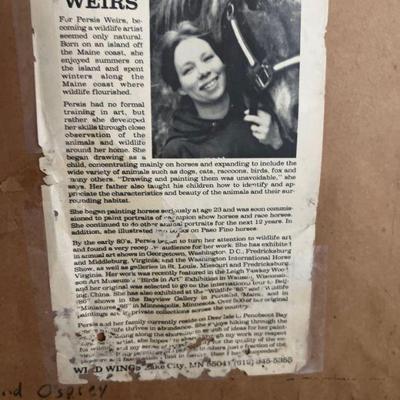 WEIRS
For Persis Weirs, be-
coming a wildlife artist
seemed only natural.
Born on an island off
the Maine coast, she
enjoyed summers on
the island and spent
winters along the
Maine coast where
wildlife flourished.
Persis had no formal
training in art, but
rather she developed
her skills through close
observation of the
animals and wildlife
around her home. She
began drawing as a
child, concentrating mainly on horses and expanding to include the
wide variety of animals such as dogs, cats, raccoons, birds, fox and
many others. "Drawing and painting them was unavoidable," she
says. Her father also taught his children how to identify and ap-
preciate the characteristics and beauty of the animals and their sur-
rounding habitat.
She began painting horses seriously at age 23 and was soon commis-
sioned to paint portraits of champion show horses and race horses.
She continued to do other animal portraits for the next 12 years. In
addition, she illustrated books on Paso Fino horses.
By the early 80's, Persis began to turn her attention to wildlife art
and found a very receptive audience for her work. She has exhibited
in annual art shows in Georgetown, Washington, D.C., Fredricksburg
and Middleburg, Virginia, and the Washington International Horse
Show, as well as galleries in St. Louis, Missouri and Fredricksburg,
Virginia. Her work was recently featured in the Leigh Yawkey Woodson
Art Museum's "Birds in Art" Exhibition in Wausau, Wisconsin,
and her original was selected to go on the international tour to Beijing,
China. She has also exhibited at the "Wildlife '85" and "Wildlife
'86" shows in the Bayview Gallery in Portland, Maine, and in
"Miniatures '86" in Minneapolis, Minnesota. Over 500 of her original
paintings are in private collections across the country.
Persis and her family currently reside on Deer Isle in Penobscot Bay
thrive in abundance. She enjoys hiking through the
along the shore
artist, she hopes
through my work my respect
for the quality of the
and my sense of
of my paintings
to others just a fraction of the
WILD WINGS Lake City, MN 55041 (612) 345-5355
nd Osprey